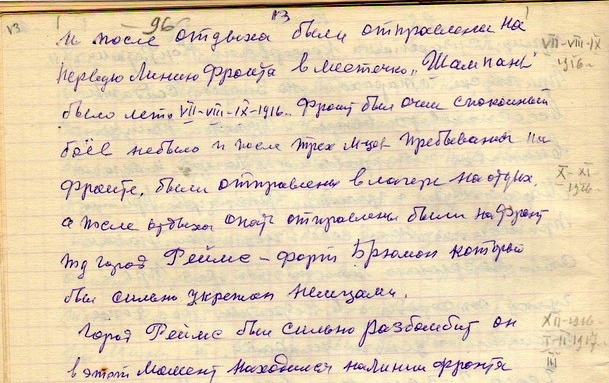 13
13
- 96
и после отдыха были отправлены на
первую Линию фронта в местечко „Шампань"
VII-VIII-IX
1916-
было лето VII-VIII-IX-1916.. Фронт был очен спокойный
боёв небыло и после трех м-цов пребывания на
фронте, были отправлены в лагерь на отдых,
X-XI
1916-
а после отдыха опять отправлены были на фронт
под город Реймс - форт Брюмон который
был сильно укреплен немцами.
город Реймс был сильно разбомбит он
XII-1916
I-II-1917-
III
в этот момент находился на линии фронта